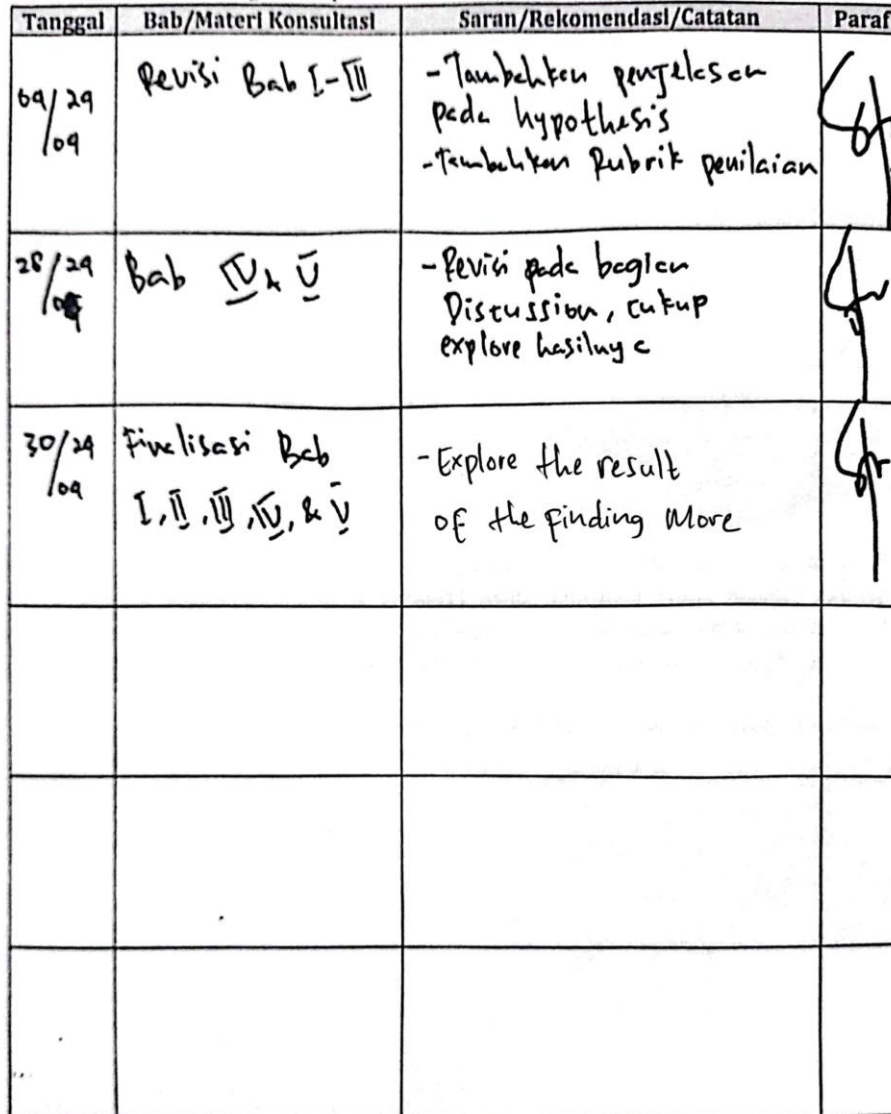 Tanggal Bab/Materi Konsultasi Saran/Rekomendasi/Catatan Paraf
09/24
/09
Revisi Bab I-III
-Tambahkan penjelasan
pada hypothesis
-Tambahkan Rubrik penilaian
/24
Bab IV & V
-Revisi pada bagian
Discussion, cukup
explore hasilnya
30/24
/09
Finalisasi Bab
I, II, III, IV, & V
-Explore the result
of the finding More